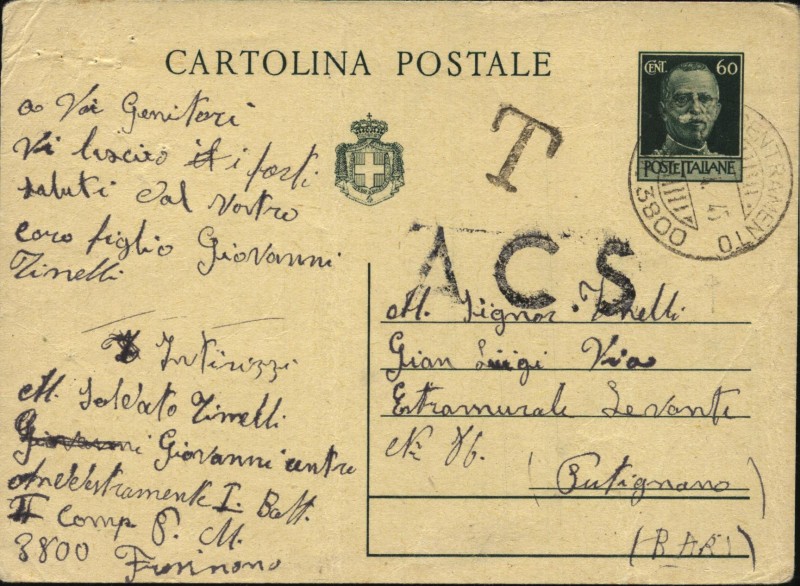 CARTOLINA POSTALE
CENT. 60
POSTE ITALIANE
T
ACS
CENTRAMENTO
3800
a Voi Genitori
Vi lascio i forti
saluti dal vostro
caro figlio Giovanni
Zinelli
Intirizzi
Al Soldato Zinelli
Giovanni Giovanni centro
Addestramente I. Batt.
II Comp P. M.
3800
Al Signor Zinelli
Gian Luigi Via
Estramurale Levante
N: 86.
(Putignano)
(BARI)